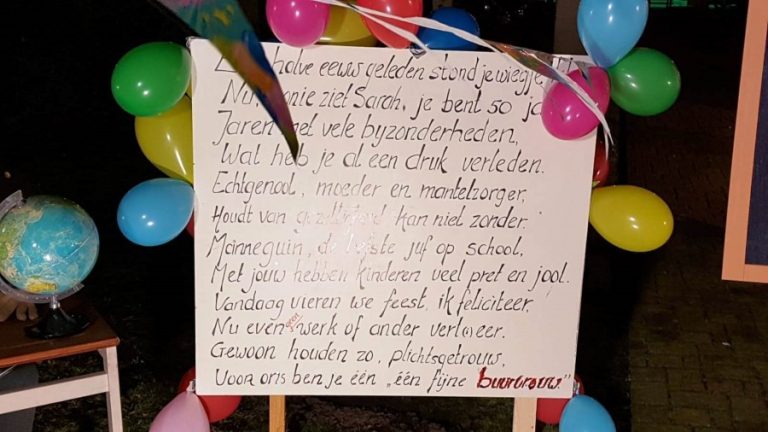 halve eeuw geleden stond je wiegje
Nu, ziet Sarah, je bent 50
Jaren met vele byzonderheden,
Wat heb je al een druk verleden.
Echtgenoot, moeder en mantelzorger,
Houdt van gezelligheid kan niet zonder.
Mannequin, de liefste juf op school,
Met jouw hebben kinderen veel pret en jool.
Vandaag vieren we feest, ik feliciteer,
Nu even geen werk of ander verk(e)er.
Gewoon houden zo, plichtsgetrouw,
Voor ons ben je één „één fijne buurvrouw"